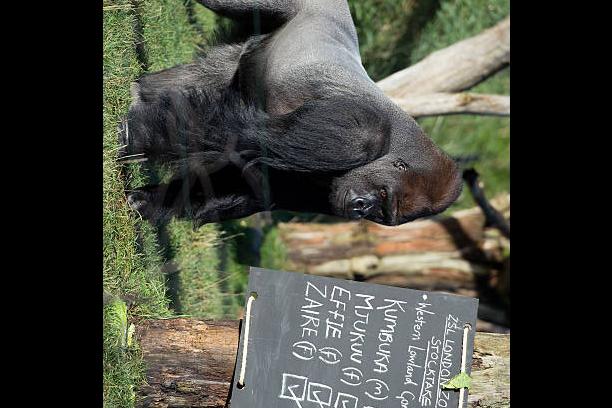 ZSL LONDON ZO
STOCKTAKE
• Western Lowland Go
KUMBUKA (m)
MJUKUU (f)
EFFIE (f)
ZAIRE (f)